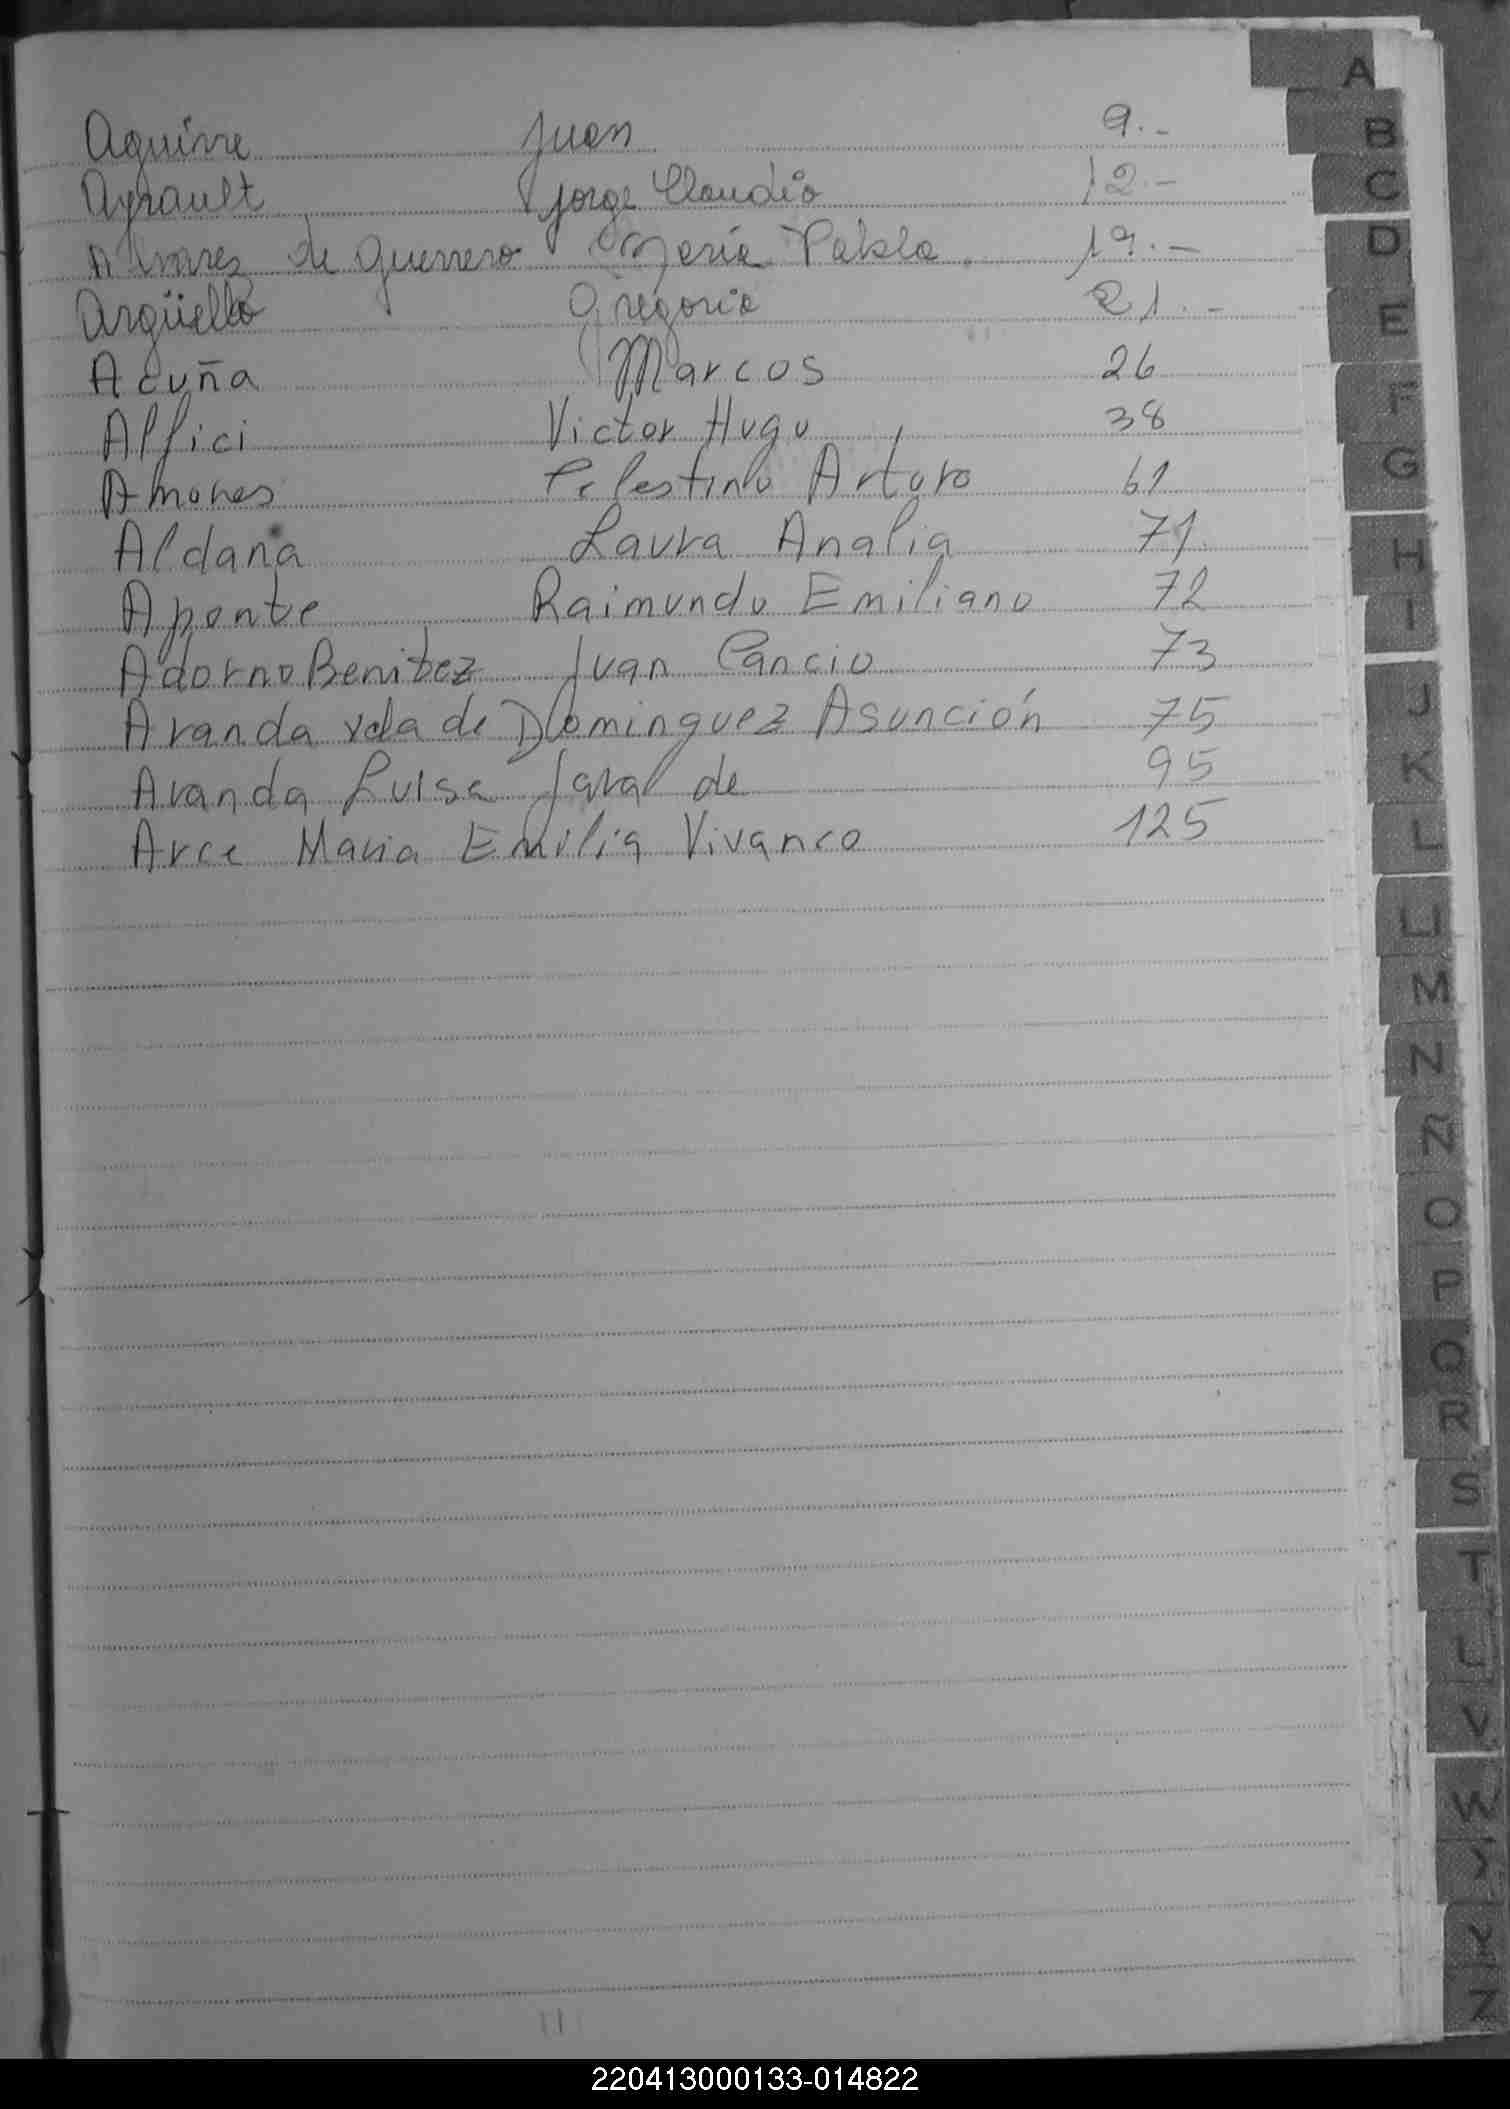 Aguirre Juan 9.-
Ayrault Jorge Claudio 12.-
Alvarez de Guerrero María Pabla 19.-
Argüello Gregorio 21.-
Acuña Marcos 26
Alfici Victor Hugo 38
Amores Celestino Arturo 61
Aldana Laura Analia 71
Aponte Raimundo Emiliano 72
Adorno Benitez Juan Cancio 73
Aranda vda de Dominguez Asunción 75
Aranda Luisa Jara de 95
Arce Maria Emilia Vivanco 125
A
B
C
D
E
F
G
H
I
J
K
L
M
N
Ñ
O
P
Q
R
S
T
V
W
Y
Z
220413000133-014822